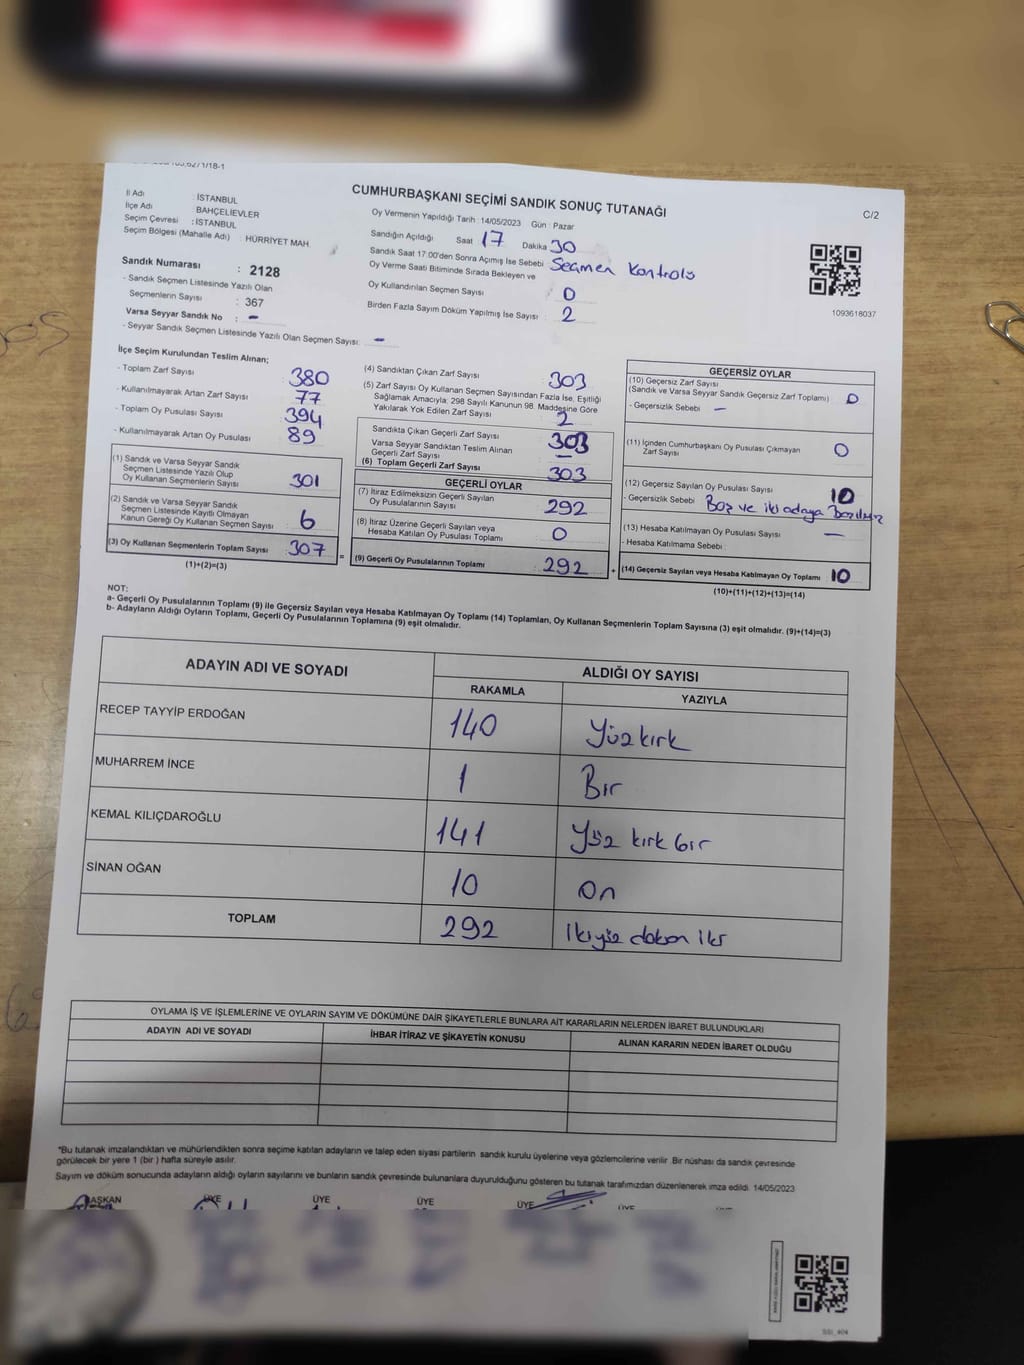 CUMHURBAŞKANI SEÇİMİ SANDIK SONUÇ TUTANAĞI
C/2
İl Adı : İSTANBUL
İlçe Adı : BAHÇELİEVLER
Seçim Çevresi : İSTANBUL
Seçim Bölgesi (Mahalle Adı) : HÜRRİYET MAH
Sandık Numarası : 2128
- Sandık Seçmen Listesinde Yazılı Olan
Seçmenlerin Sayısı : 367
Varsa Seyyar Sandık No : -
- Seyyar Sandık Seçmen Listesinde Yazılı Olan Seçmen Sayısı: -
Oy Vermenin Yapıldığı Tarih : 14/05/2023 Gün : Pazar
Sandığın Açıldığı Saat 17 Dakika 30
Sandık Saat 17:00'den Sonra Açılmış İse Sebebi Seçmen Kontrolü
Oy Verme Saati Bitiminde Sırada Bekleyen ve
Oy Kullandırılan Seçmen Sayısı 0
Birden Fazla Sayım Döküm Yapılmış İse Sayısı 2
1093618037
İlçe Seçim Kurulundan Teslim Alınan;
- Toplam Zarf Sayısı 380
- Kullanılmayarak Artan Zarf Sayısı 77
- Toplam Oy Pusulası Sayısı 394
- Kullanılmayarak Artan Oy Pusulası 89
(1) Sandık ve Varsa Seyyar Sandık
Seçmen Listesinde Yazılı Olup
Oy Kullanan Seçmenlerin Sayısı 301
(2) Sandık ve Varsa Seyyar Sandık
Seçmen Listesinde Kayıtlı Olmayan
Kanun Gereği Oy Kullanan Seçmen Sayısı 6
(3) Oy Kullanan Seçmenlerin Toplam Sayısı 307
(1)+(2)=(3)
(4) Sandıktan Çıkan Zarf Sayısı 303
(5) Zarf Sayısı Oy Kullanan Seçmen Sayısından Fazla İse, Eşitliği
Sağlamak Amacıyla; 298 Sayılı Kanunun 98. Maddesine Göre
Yakılarak Yok Edilen Zarf Sayısı 2
Sandıkta Çıkan Geçerli Zarf Sayısı 303
Varsa Seyyar Sandıktan Teslim Alınan
Geçerli Zarf Sayısı -
(6) Toplam Geçerli Zarf Sayısı 303
GEÇERLİ OYLAR
(7) İtiraz Edilmeksizin Geçerli Sayılan
Oy Pusulalarının Sayısı 292
(8) İtiraz Üzerine Geçerli Sayılan veya
Hesaba Katılan Oy Pusulası Toplamı 0
= (9) Geçerli Oy Pusulalarının Toplamı 292 +
GEÇERSİZ OYLAR
(10) Geçersiz Zarf Sayısı
(Sandık ve Varsa Seyyar Sandık Geçersiz Zarf Toplamı) 0
- Geçersizlik Sebebi -
(11) İçinden Cumhurbaşkanı Oy Pusulası Çıkmayan
Zarf Sayısı 0
(12) Geçersiz Sayılan Oy Pusulası Sayısı 10
- Geçersizlik Sebebi Boş ve iki adaya
(13) Hesaba Katılmayan Oy Pusulası Sayısı -
- Hesaba Katılmama Sebebi
(14) Geçersiz Sayılan veya Hesaba Katılmayan Oy Toplamı 10
(10)+(11)+(12)+(13)=(14)
NOT:
a- Geçerli Oy Pusulalarının Toplamı (9) ile Geçersiz Sayılan veya Hesaba Katılmayan Oy Toplamı (14) Toplamları, Oy Kullanan Seçmenlerin Toplam Sayısına (3) eşit olmalıdır. (9)+(14)=(3)
b- Adayların Aldığı Oyların Toplamı, Geçerli Oy Pusulalarının Toplamına (9) eşit olmalıdır.
ADAYIN ADI VE SOYADI ALDIĞI OY SAYISI
RAKAMLA YAZIYLA
RECEP TAYYİP ERDOĞAN 140 Yüzkırk
MUHARREM İNCE 1 Bir
KEMAL KILIÇDAROĞLU 141 Yüz kırk bir
SİNAN OĞAN 10 On
TOPLAM 292 İkiyüz doksan iki
OYLAMA İŞ VE İŞLEMLERİNE VE OYLARIN SAYIM VE DÖKÜMÜNE DAİR ŞİKAYETLERLE BUNLARA AİT KARARLARIN NELERDEN İBARET BULUNDUKLARI
ADAYIN ADI VE SOYADI İHBAR İTİRAZ VE ŞİKAYETİN KONUSU ALINAN KARARIN NEDEN İBARET OLDUĞU
*Bu tutanak imzalandıktan ve mühürlendikten sonra seçime katılan adayların ve talep eden siyasi partilerin sandık kurulu üyelerine veya gözlemcilerine verilir. Bir nüshası da sandık çevresinde
görülecek bir yere 1 (bir) hafta süreyle asılır.
Sayım ve döküm sonucunda adayların aldığı oyların sayılarını ve bunların sandık çevresinde bulunanlara duyurulduğunu gösteren bu tutanak tarafımızdan düzenlenerek imza edildi. 14/05/2023
BAŞKAN ÜYE ÜYE ÜYE ÜYE ÜYE ÜYE